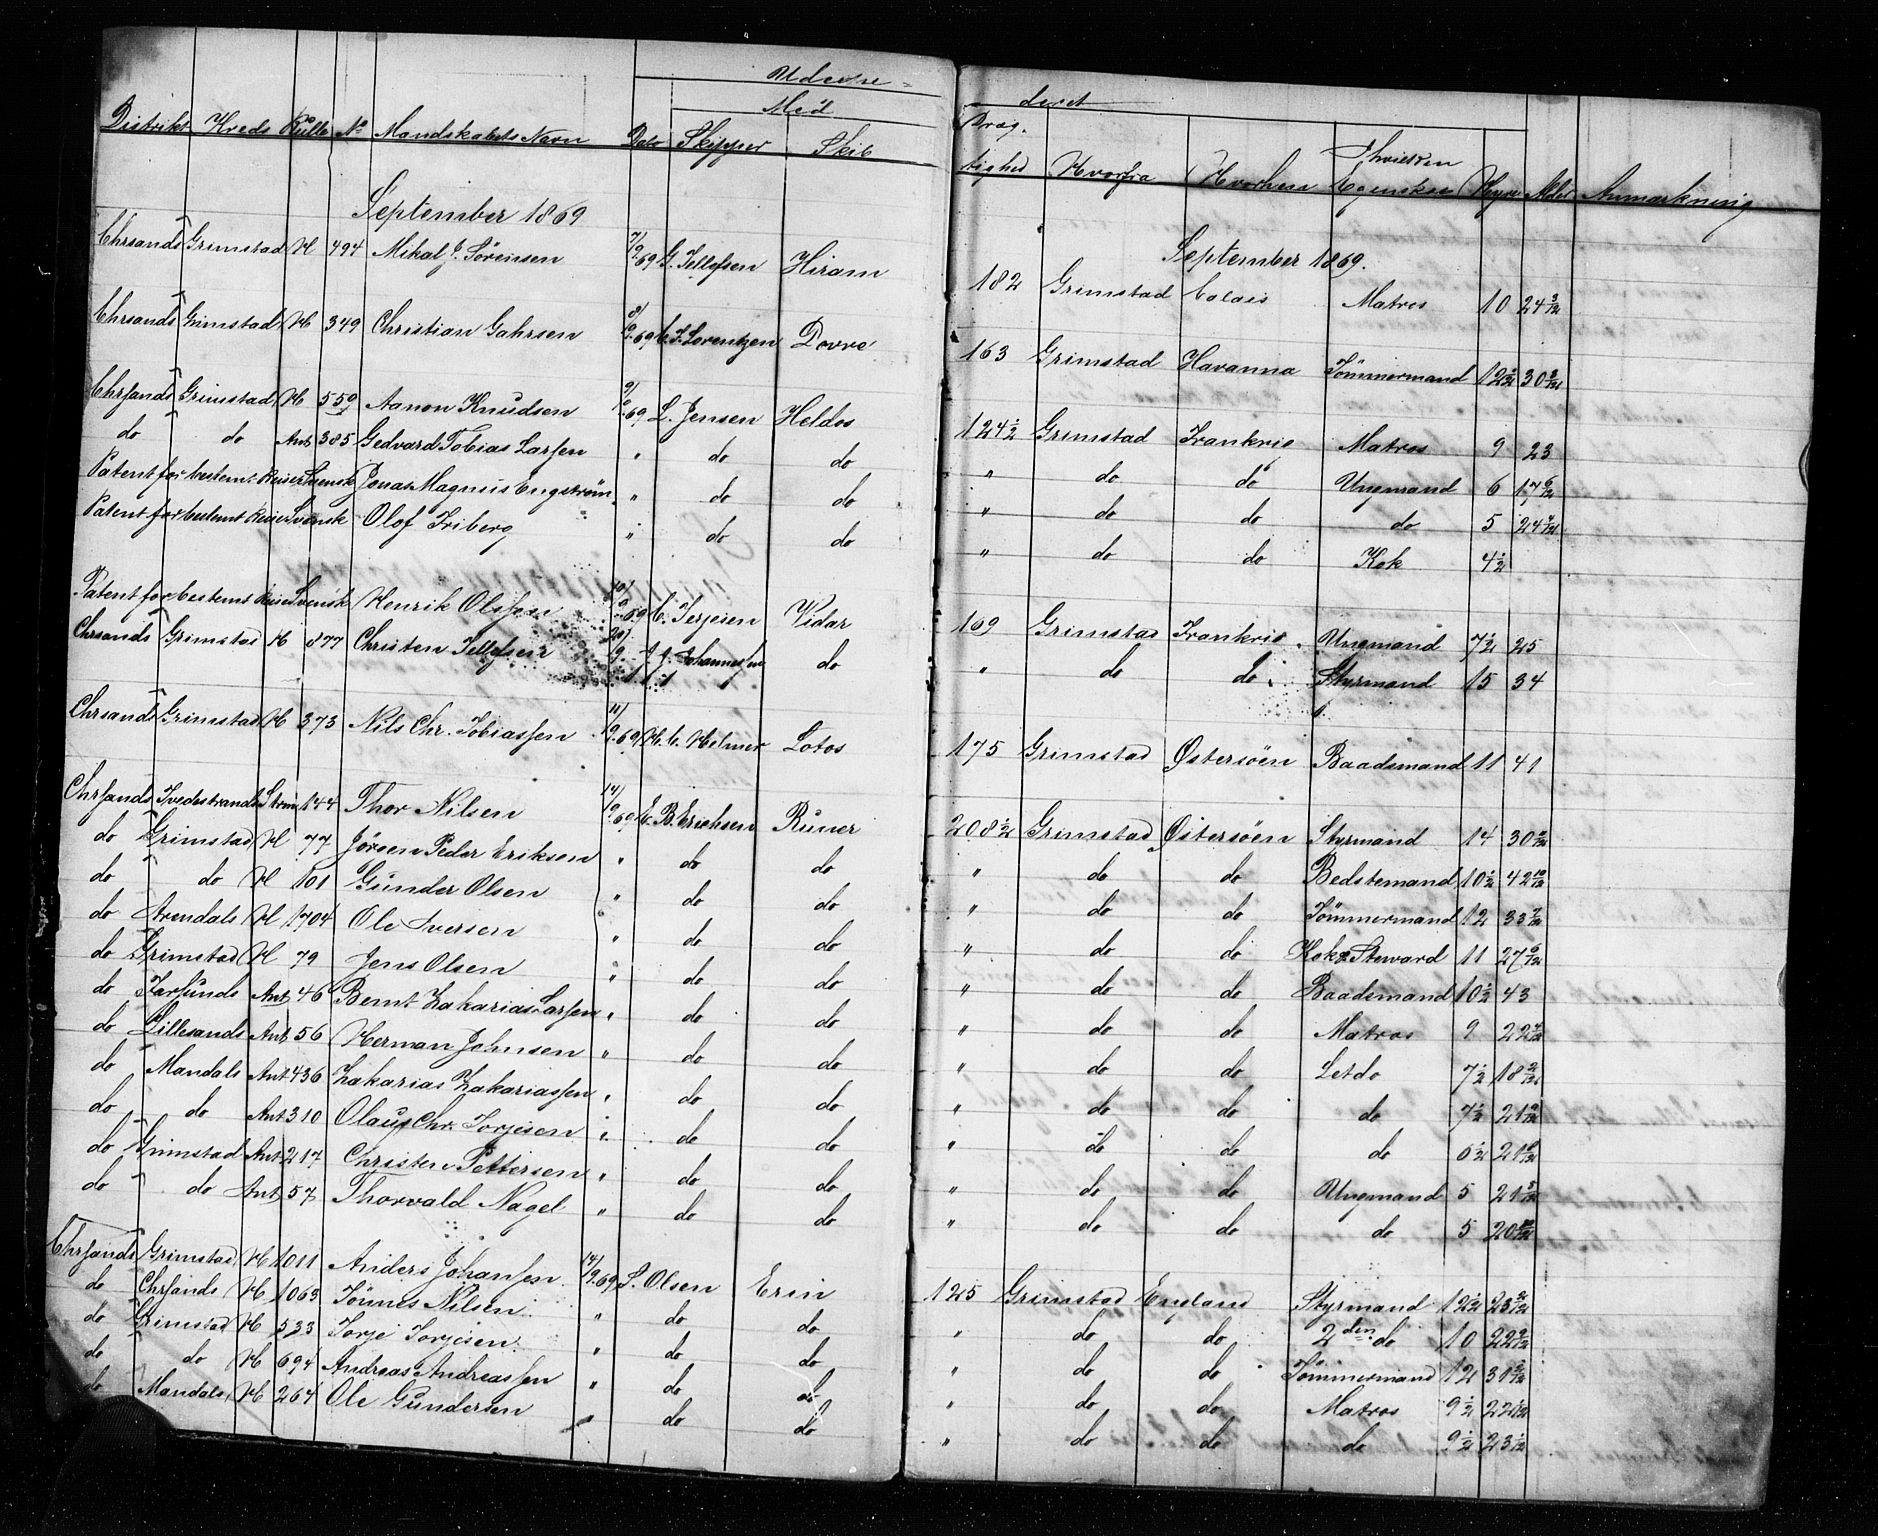 Udvaaren = deret
Med
Distrikt Kreds Rulle No Mandskabets Navn Dato Skipper Skib
Dræg-
tighed Hvorfra Hvorhen Hvilken Egenskab Hyre Alder Anmærkning
September 1869
September 1869.
Chrsands Grimstad H 494 Mikal J. Sörensen 7/9.69 G. Tellefsen Hiram 182 Grimstad Calais Matros 10 24 3/12
Chrsands Grimstad H 349 Christian Gahrsen 8/9.69 C. J. Lorentzen Dovre 163 Grimstad Havanna Tömmermand 12 1/2 30 8/12
Chrsands Grimstad H 559 Aanon Knudsen 9/9.69 L. Jensen Heldos 124 1/2 Grimstad Frankrig Matros 9 23
do do Ant 385 Gedvard Tobias Larsen " do do " do do Ungmand 6 17 6/12
Patent for bestemt Reise Svensk Jonas Magnus Engström " do do " do do do 5 24 4/12
Patent for bestemt Reise Svensk Olof Friberg " do do " do do Kok 4 1/2
Patent for bestemt Reise Svensk Henrik Olssen 10/9.69 C. Terjesen Vidar 169 Grimstad Frankrig Ungmand 7 1/2 25
Chrsands Grimstad H 877 Christen Tellefsen 20/9 J. J. Johannessen do " do do Styrmand 15 34
Chrsands Grimstad H 373 Nils Chr. Tobiassen 11/9.69 H. C. Helmer Lotos 175 Grimstad Østersöen Baadsmand 11 41
Chrsands Tvedestrands Ström 144 Thor Nilsen 14/9.69 E. B. Erichsen Runer 208 1/2 Grimstad Østersöen Styrmand 14 30 2/12
do Grimstad H 77 Jörgen Peder Eriksen " do do " do do Bedstemand 10 1/2 42 10/12
do do H 101 Gunder Olsen " do do " do do Tömmermand 12 33 7/12
do Arendals H 1704 Ole Iversen " do do " do do Kok & Steward 11 27 6/12
do Grimstad H 79 Jens Olsen " do do " do do Baadsmand 10 1/2 43
do Farsunds Ant 46 Bernt Zakarias Larsen " do do " do do Matros 9 22 4/12
do Lillesands Ant 56 Herman Johnsen " do do " do do Letdo 7 1/2 18 2/12
do Mandals Ant 436 Zakarias Zakariassen " do do " do do do 7 1/2 21 9/12
do do Ant 310 Olaus Chr. Torjesen " do do " do do do 6 1/2 21 6/12
do Grimstad Ant 217 Christen Pettersen " do do " do do Ungmand 5 21 8/12
do do Ant 57 Thorvald Nagel " do do " do do do 5 20 10/12
Chrsands Grimstad H 1011 Anders Johansen 14/9.69 S. Olsen Erin 125 Grimstad England Styrmand 12 1/2 23 2/12
do Chrsands H 1063 Tönnes Nilsen " do do " do do 2den do 10 22 9/12
do Grimstad H 533 Torje Torjesen " do do " do do Tömmermand 12 31 2/12
do do H 694 Andreas Andreassen " do do " do do Matros 9 1/2 22
do Mandals H 264 Ole Gundersen " do do " do do do 9 1/2 23 1/12